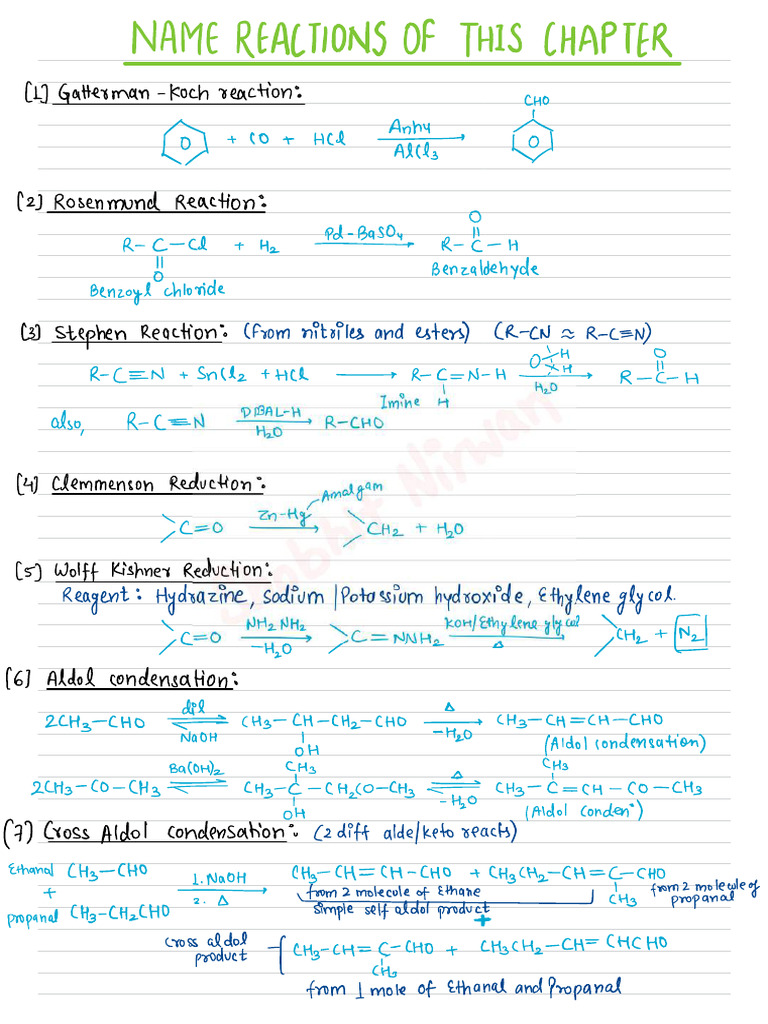 NAME REACTIONS OF THIS CHAPTER
[1] Gatterman-Koch reaction:
+ CO + HCl Anhy AlCl3 CHO
[2] Rosenmund Reaction:
R-C-Cl + H2 Pd-BaSO4 R-C-H
O O
Benzoyl chloride Benzaldehyde
(3) Stephen Reaction: (from nitriles and esters) (R-CN ≈ R-C≡N)
R-C≡N + SnCl2 + HCl → R-C=N-H O H H H2O → R-C-H O
H
Imine
also, R-C≡N DIBAL-H H2O → R-CHO
(4) Clemmenson Reduction:
C=O Zn-Hg Amalgam → CH2 + H2O
[5] Wolff Kishner Reduction:
Reagent: Hydrazine, Sodium/Potassium hydroxide, Ethylene glycol.
C=O NH2NH2 -H2O → C=NNH2 KOH/Ethylene glycol Δ → CH2 + N2
[6] Aldol condensation:
2CH3-CHO dil NaOH ⇌ CH3-CH-CH2-CHO Δ -H2O → CH3-CH=CH-CHO
OH (Aldol condensation)
CH3 CH3
2CH3-CO-CH3 Ba(OH)2 ⇌ CH3-C-CH2CO-CH3 Δ -H2O ⇌ CH3-C=CH-CO-CH3
OH (Aldol conden.)
(7) Cross Aldol condensation: (2 diff alde/keto reacts)
Ethanal CH3-CHO
+
propanal CH3-CH2CHO
1. NaOH
2. Δ
→ CH3-CH=CH-CHO + CH3CH2-CH=C-CHO
CH3
from 2 molecule of Ethane from 2 molecule of propanal
simple self aldol product
+
cross aldol product CH3-CH=C-CHO + CH3CH2-CH=CHCHO
CH3
from 1 mole of Ethanal and Propanal
Shobhit Nirwan